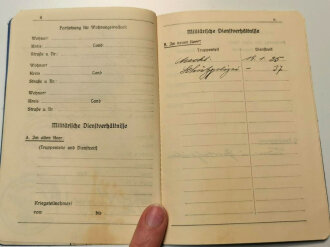 4
Fortsetzung für Wohnungswechsel:
Wohnort
Kreis: Land
Straße u. Nr.:
Wohnort
Kreis: Land
Straße u. Nr.:
Wohnort
Kreis: Land
Straße u. Nr.:
Militärische Dienstverhältnisse
A. Im alten Heer:
(Truppenteile und Dienstzeit)
Kriegsteilnehmer:
von bis
Militärische Dienstverhältnisse
B. Im neuen Heer:
Truppenteil Dienstzeit
Schutzpolizei - 37